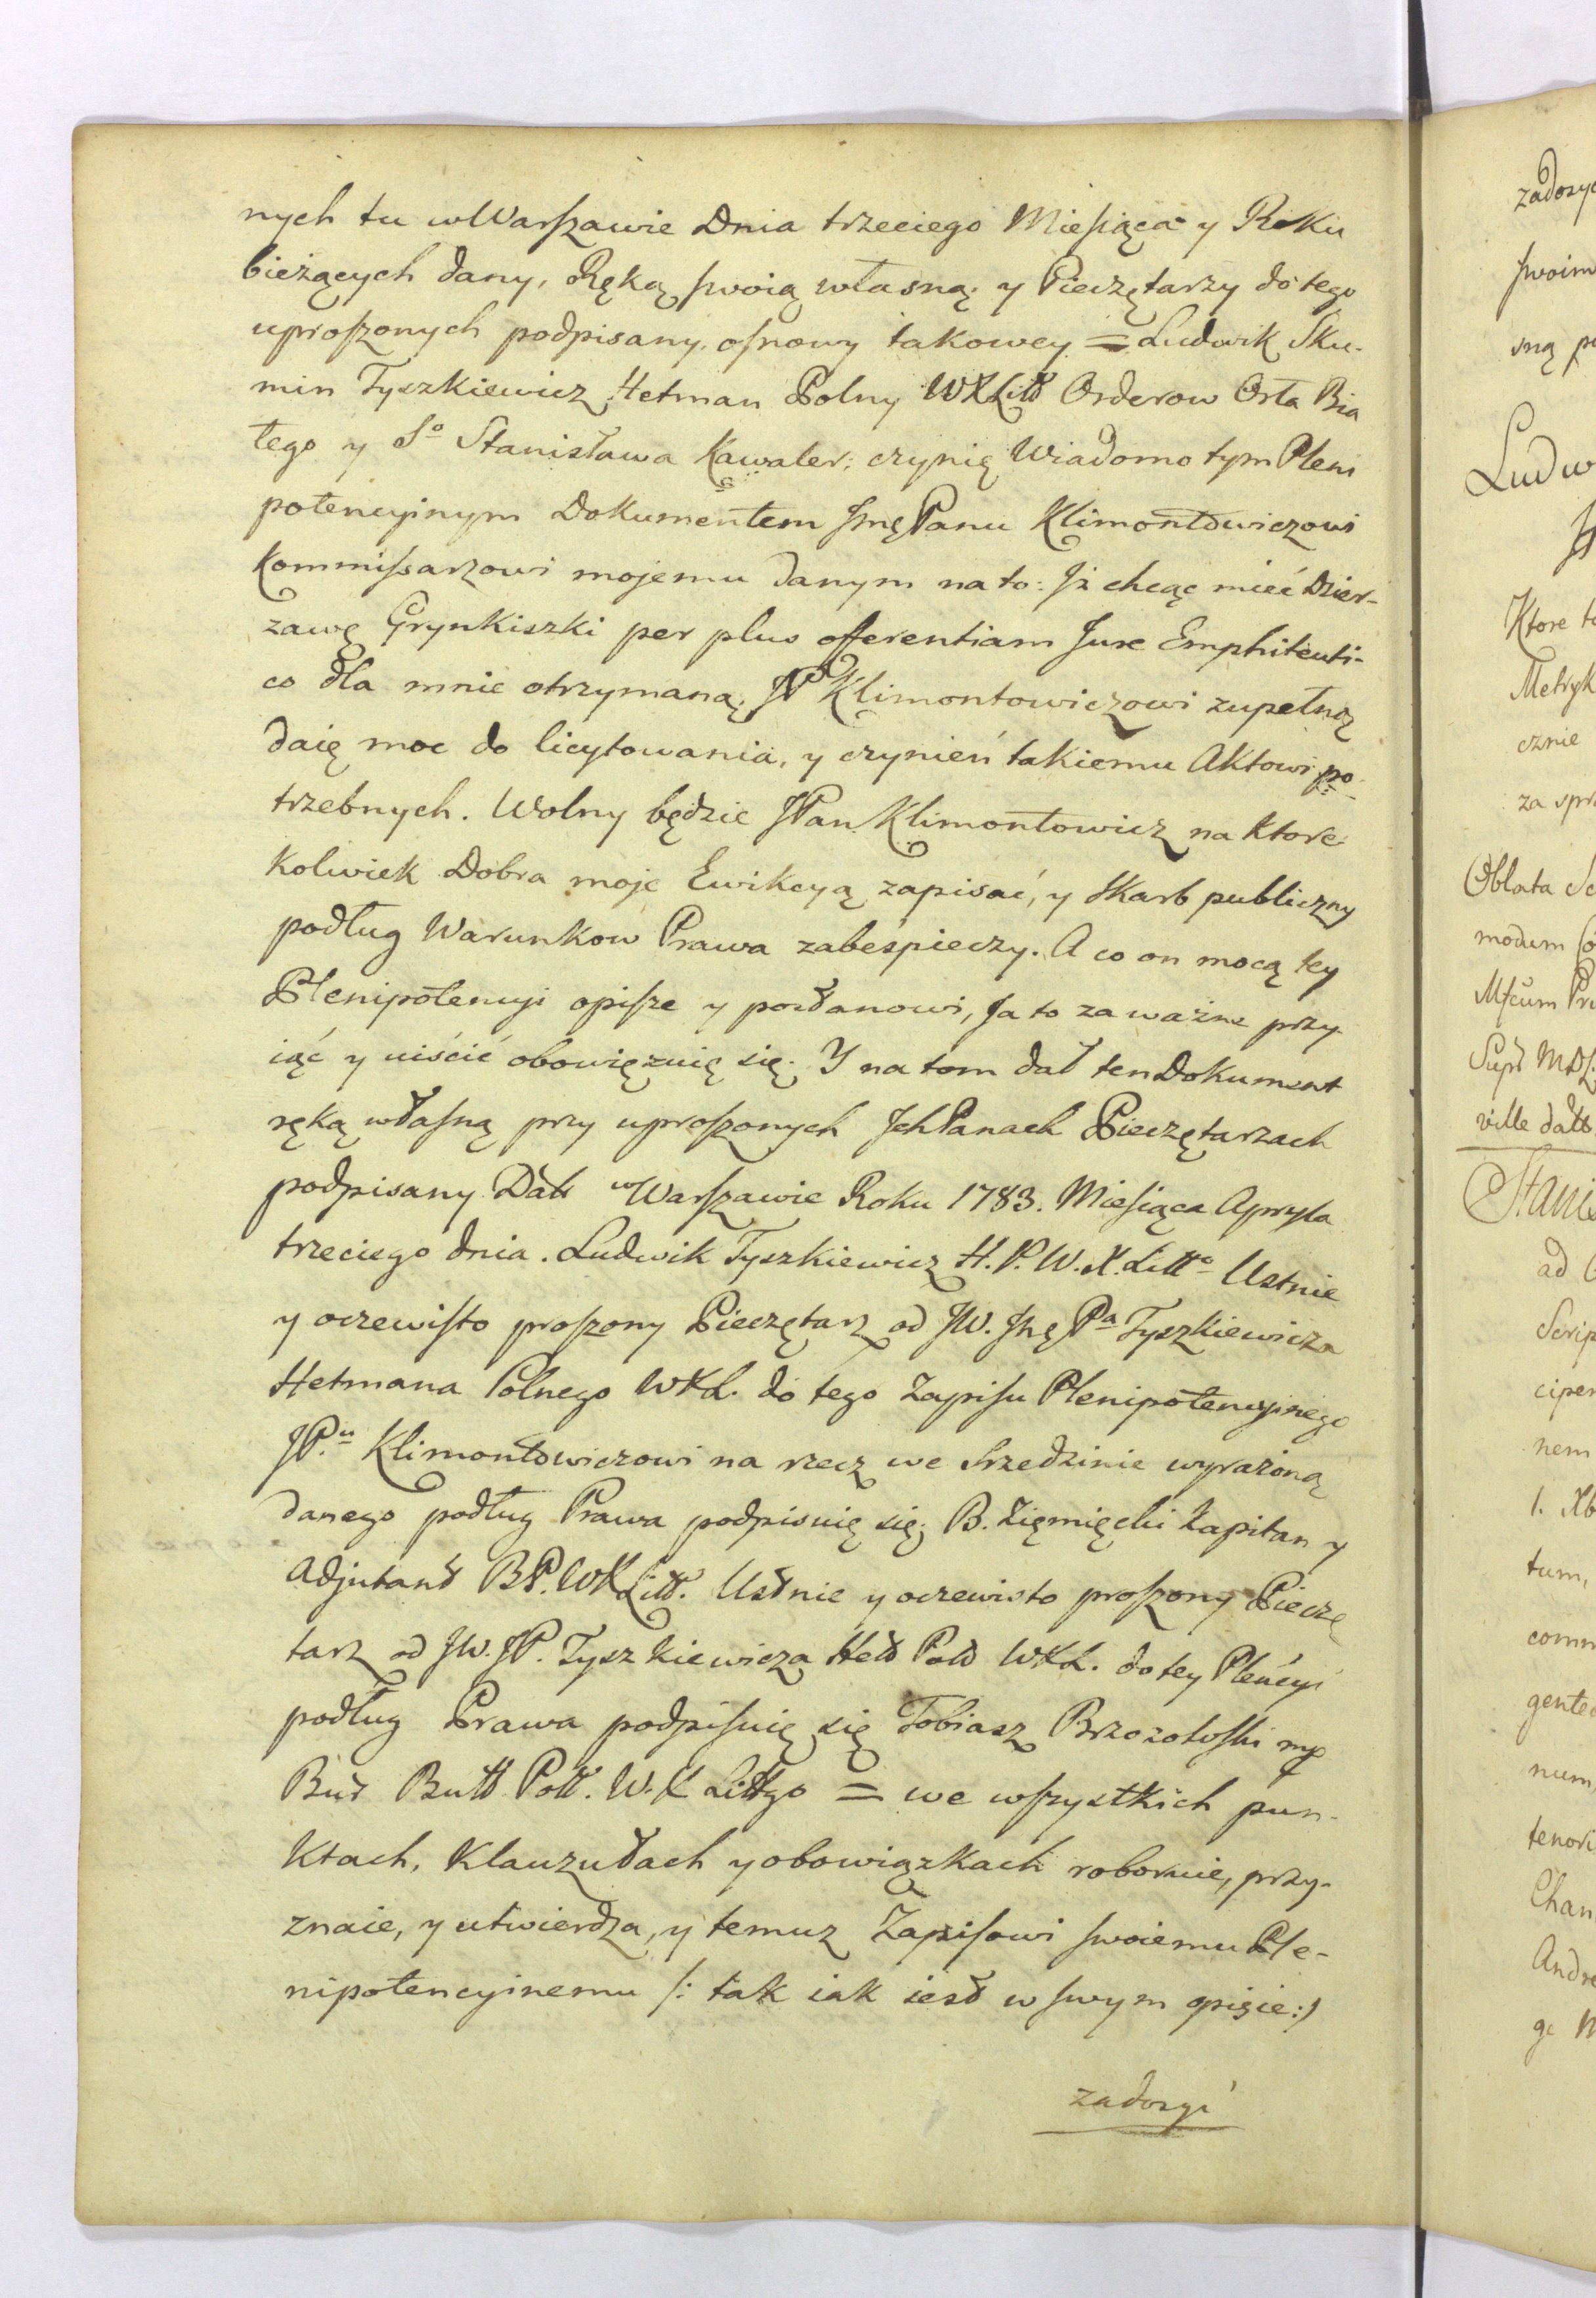 nych tu w Warszawie Dnia trzeciego Miesiąca y Roku
bieżących dany, Ręką swoią własną y Pieczętarzy do tego
uproszonych podpisany, osnowy takowey = Ludwik Sku-
min Tyszkiewicz Hetman Polny WXLitt Orderow Orła Bia
łego y So Stanisława Kawaler, czynię Wiadomo tym Pleni
potencyinym Dokumentem JmęPanu Klimontowiczowi
Kommissarzowi mojemu danym na to: Jż chcąc mieć Dzier-
zawę Grynkiszki per plus offerentiam Jure Emphiteuti-
co dla mnie otrzymaną, JP Klimontowiczowi zupełną
daię moc do licytowania, y czynień takiemu Aktowi po-
trzebnych. Wolny będzie JPan Klimontowicz na ktore-
kolwiek Dobra moje Ewikcyą zapisać, y Skarb publiczny
podług Warunkow Prawa zabespieczy. A co on mocą tey
Plenipotencyi opisze y postanowi, Ja to za ważne przy-
iąć y uiścić obowięzuię się. Y na tom dał ten Dokument
ręką własną przy uproszonych JchPanach Pieczętarzach
podpisany Datt w Warszawie Roku 1783. Miesiąca Apryla
trzeciego dnia. Ludwik Tyszkiewicz H. P. W. X. Litto Ustnie
y oczewisto proszony Pieczętarz od JW. Jmę Pa Tyszkiewicza
Hetmana Polnego WXL. do tego Zapisu Plenipotencyinego
JP.u Klimontowiczowi na rzecz we srzedzinie wyrażoną
danego podług Prawa podpisuię się; B. Zięmięcki Kapitan y
Adjutant BP. WXLitt. Ustnie y oczewisto proszony Pieczę
tarz od JW. JP. Tyszkiewicza Hett Poln WXL. do tey Plencyi
podług Prawa podpisuię się Tobiasz Brzozowski mp
Butt Poll. W. X Littgo = we wszystkich pun-
ktach, Klauzułach y obowiązkach roboruie, przy-
znaie, y utwierdza, y temuz Zapisowi swoiemu Ple-
nipotencyinemu /: tak iak iest w swym opisie:)
zadosyć
zadosyć
swoim
sną
Ludw
Ktore
Metryk
cznie
za spr
Oblata
modum
Mscum
ville datt
Stanis
ad
Scrip
cipen
nem
1. Xb
tum,
comm
gente
num,
tenori
Chan
Andre